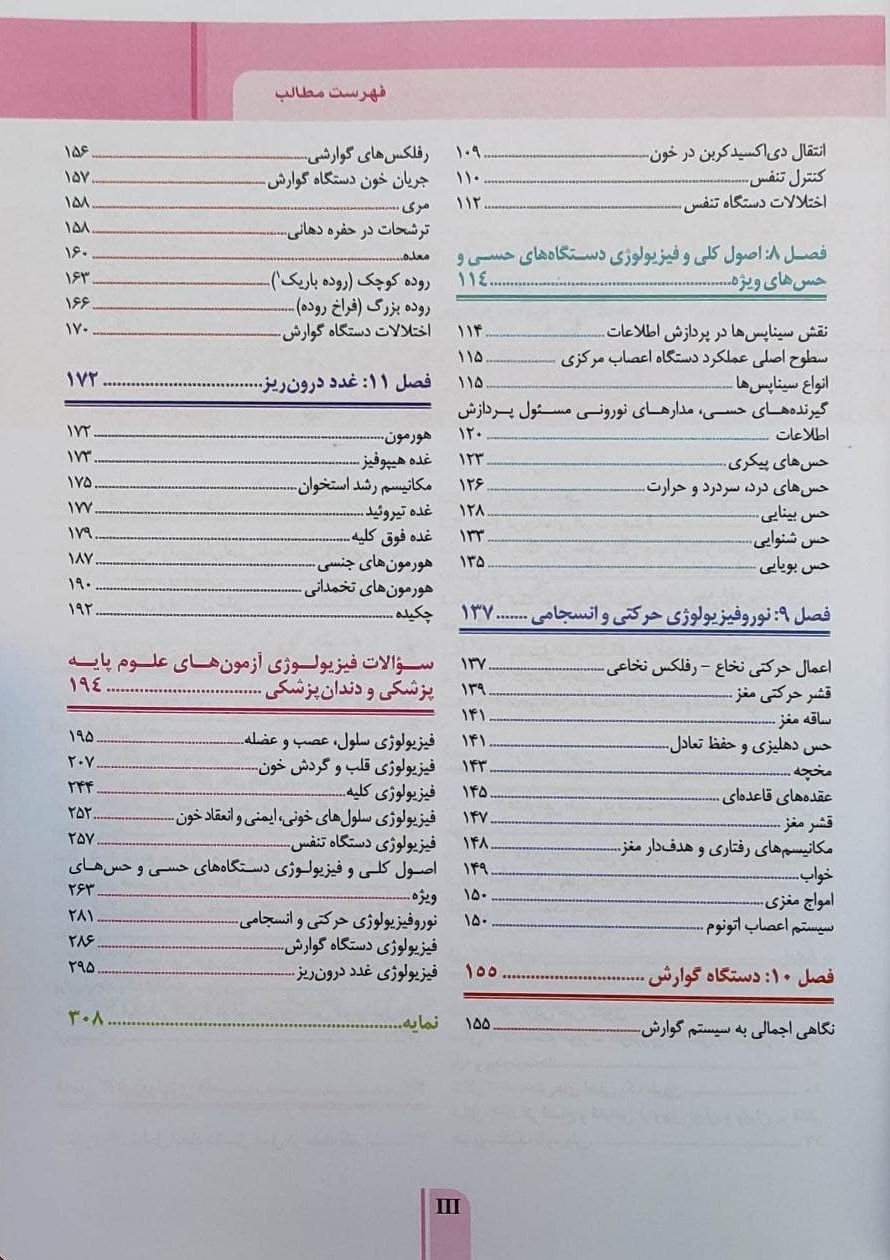 فهرست مطالب
انتقال دی‌اکسیدکربن در خون ........ ۱۰۹
کنترل تنفس ........ ۱۱۰
اختلالات دستگاه تنفس ........ ۱۱۲
فصل ۸: اصول کلی و فیزیولوژی دستگاه‌های حسی و
حس‌های ویژه ........ ۱۱۴
نقش سیناپس‌ها در پردازش اطلاعات ........ ۱۱۴
سطوح اصلی عملکرد دستگاه اعصاب مرکزی ........ ۱۱۵
انواع سیناپس‌ها ........ ۱۱۵
گیرنده‌های حسی، مدارهای نورونی مسئول پردازش
اطلاعات ........ ۱۲۰
حس‌های پیکری ........ ۱۲۳
حس‌های درد، سردرد و حرارت ........ ۱۲۶
حس بینایی ........ ۱۲۸
حس شنوایی ........ ۱۳۳
حس بویایی ........ ۱۳۵
فصل ۹: نوروفیزیولوژی حرکتی و انسجامی ........ ۱۳۷
اعمال حرکتی نخاع - رفلکس نخاعی ........ ۱۳۷
قشر حرکتی مغز ........ ۱۳۹
ساقه مغز ........ ۱۴۱
حس دهلیزی و حفظ تعادل ........ ۱۴۱
مخچه ........ ۱۴۳
عقده‌های قاعده‌ای ........ ۱۴۵
قشر مغز ........ ۱۴۷
مکانیسم‌های رفتاری و هدف‌دار مغز ........ ۱۴۸
خواب ........ ۱۴۹
امواج مغزی ........ ۱۵۰
سیستم اعصاب اتونوم ........ ۱۵۰
فصل ۱۰: دستگاه گوارش ........ ۱۵۵
نگاهی اجمالی به سیستم گوارش ........ ۱۵۵
رفلکس‌های گوارشی ........ ۱۵۶
جریان خون دستگاه گوارش ........ ۱۵۷
مری ........ ۱۵۸
ترشحات در حفره دهانی ........ ۱۵۸
معده ........ ۱۶۰
روده کوچک (روده باریک') ........ ۱۶۳
روده بزرگ (فراخ روده) ........ ۱۶۶
اختلالات دستگاه گوارش ........ ۱۷۰
فصل ۱۱: غدد درون‌ریز ........ ۱۷۲
هورمون ........ ۱۷۲
غده هیپوفیز ........ ۱۷۳
مکانیسم رشد استخوان ........ ۱۷۵
غده تیروئید ........ ۱۷۷
غده فوق کلیه ........ ۱۷۹
هورمون‌های جنسی ........ ۱۸۷
هورمون‌های تخمدانی ........ ۱۹۰
چکیده ........ ۱۹۲
سؤالات فیزیولوژی آزمون‌های علوم پایه
پزشکی و دندان‌پزشکی ........ ۱۹۴
فیزیولوژی سلول، عصب و عضله ........ ۱۹۵
فیزیولوژی قلب و گردش خون ........ ۲۰۷
فیزیولوژی کلیه ........ ۲۴۴
فیزیولوژی سلول‌های خونی، ایمنی و انعقاد خون ........ ۲۵۲
فیزیولوژی دستگاه تنفس ........ ۲۵۷
اصول کلی و فیزیولوژی دستگاه‌های حسی و حس‌های
ویژه ........ ۲۶۳
نوروفیزیولوژی حرکتی و انسجامی ........ ۲۸۱
فیزیولوژی دستگاه گوارش ........ ۲۸۶
فیزیولوژی غدد درون‌ریز ........ ۲۹۵
نمایه ........ ۳۰۸
III